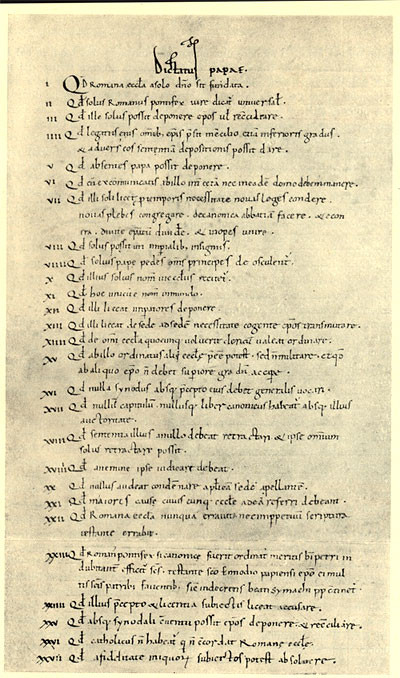 Dictatus papae.
I Qd Romana eccla a solo dno sit fundata.
II Qd solus Romanus pontifex iure dicat universal.
III Qd ille solus possit deponere epos vel reconciliare.
IIII Qd legatus eius omib, epis psit in concilio etiam inferioris gradus.
& adversus eos sententia depositionis possit dare.
V Qd absentes papa possit deponere.
VI Qd cu excommunicatis ab illo int cetera nec in eade domo debem manere.
VII Qd illi soli licet p temporis necessitate novas leges condere
novas plebes congregare. de canonica abbatia facere. & econ
tra. divite epatu divide. & inopes unire.
VIII Qd solus possit uti impialib, insigniis.
VIIII Qd solius pape pedes oms principes deosculent.
X Qd illius solius nom in ecclis recitet.
XI Qd hoc unicu e nom in mundo.
XII Qd illi liceat impatores deponere.
XIII Qd illi liceat de sede ad sede necessitate cogente epos transmutare.
XIIII Qd de omi eccla quocunq, voluerit clericu valeat ordinare.
XV Qd ab illo ordinatus alii eccle pee potest. sed n militare. et qd
ab aliquo epo n debet superiore gradu accipe.
XVI Qd nulla synodus absq, pcepto eius debet generalis vocari.
XVII Qd nullu capitulu nullusq, liber canonicus habeat absq, illius
auctoritate.
XVIII Qd sententia illius a nullo debeat retractari & ipse omium
solus retractare possit.
XVIIII Qd a nemine ipse iudicari debeat.
XX Qd nullus audeat condenare aplica sede apellante.
XXI Qd maiores cause cuiuscunq, eccle ad ea referri debeant.
XXII Qd Romana eccla nunqua erravit nec imppetuu scriptura
testante errabit.
XXIII Qd Roman pontifex si canonice fuerit ordinat meritis bi petri in
dubitant effici scs. testante sco Ennodio papiensi epo ei mul
tis scis patrib, faventib, sic in decretis beati symachi pp continet.
XXIIII Qd illius pcepto & licentia subiectis liceat accusare.
XXV Qd absq, synodali conventu possit epos deponere & reconciliare.
XXVI Qd catholicus n habeat q n concordat Romane eccle.
XXVII Qd a fidelitate iniquor subiectos potest absolvere.